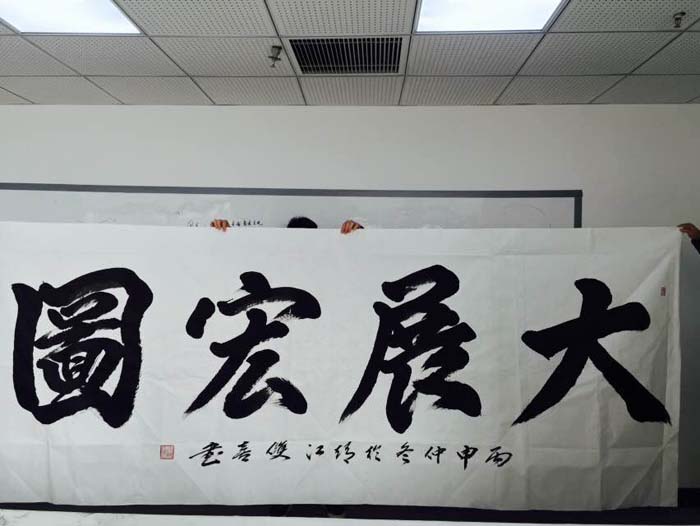 大展宏圖
丙申仲冬於江雙喜書